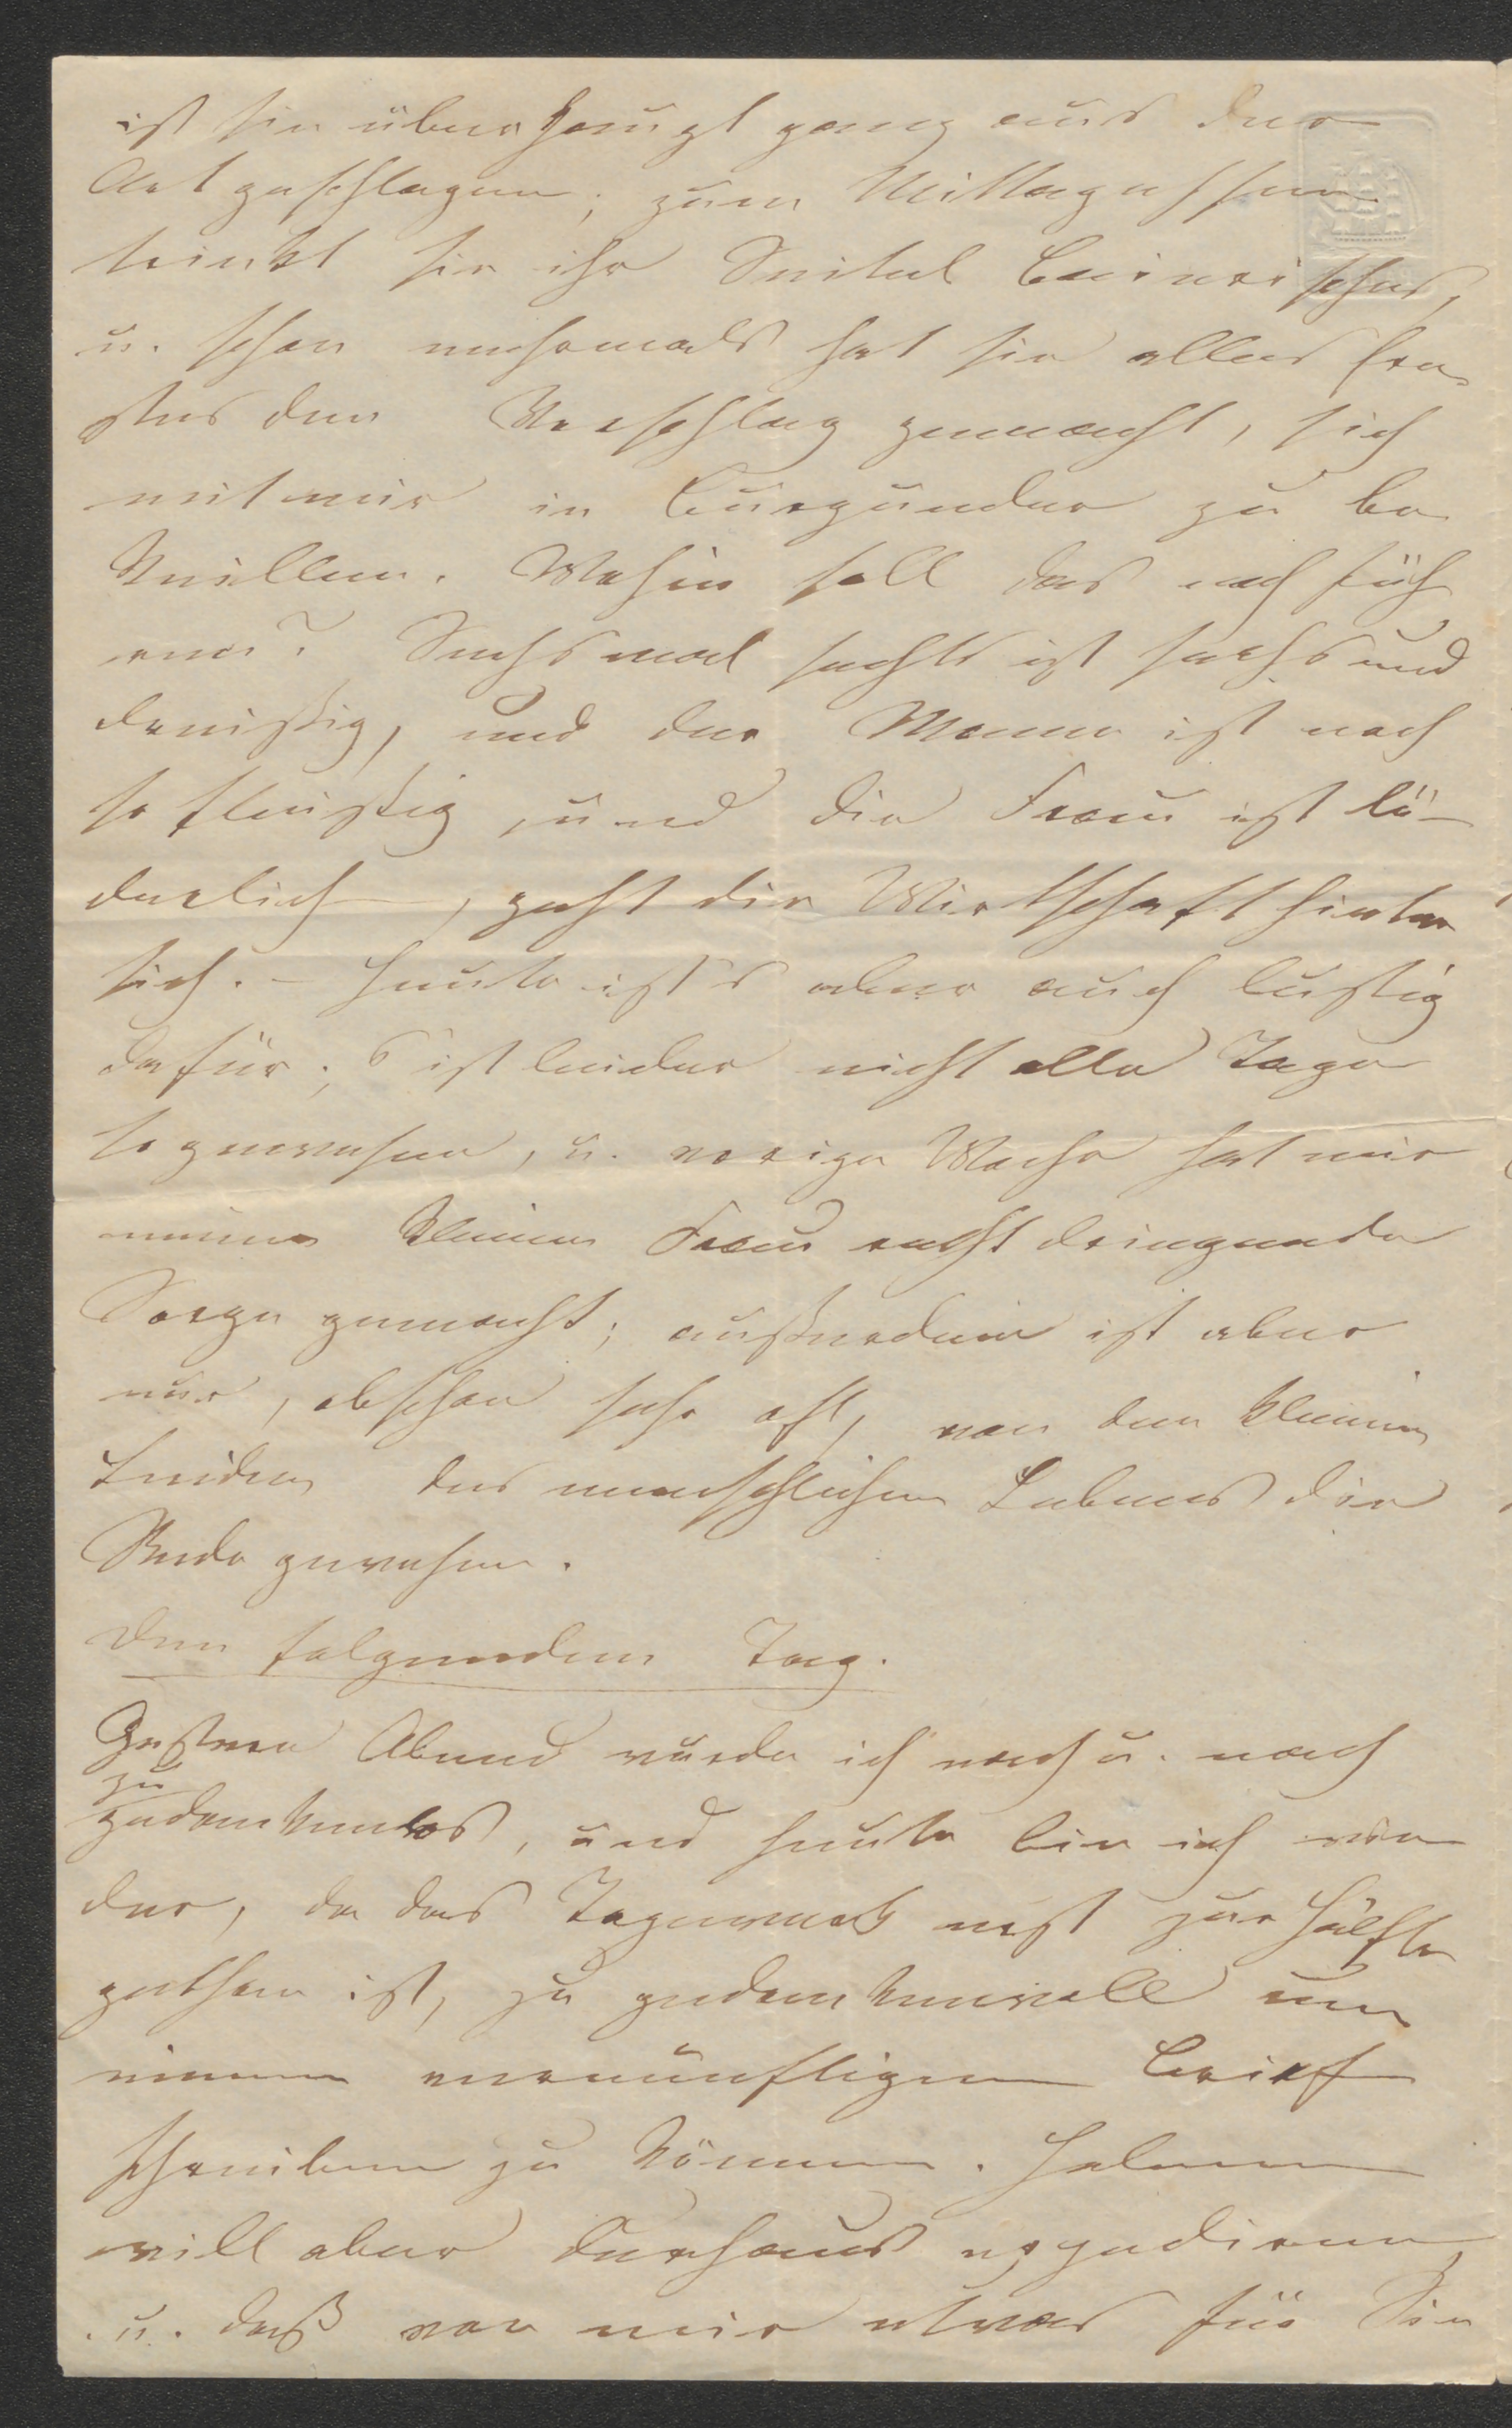 ist sie überhaupt ganz aus der
Art geschlagen; zum Mittagessen
trinkt sie ihr Seitel Bairisches,
u. schon mehrmals hat sie alles Ern-
stes den Vorschlag gemacht, sich
mit mir in Burgunder zu be
kneillen. Wohin soll das noch füh
ren? Sechsmal sechs ist sechs und
dreißig, und der Mann ist noch
so fleißig, und die Frau ist lü-
derlich, geht die Wirtschaft hinter
sich. – Heute ist's aber auch lustig
dafür; 's ist leider nicht alle Tage
so gewesen, u. vorige Woche hat mir
meine kleine Frau recht dringende
Sorge gemacht; außerdem ist aber
nur, obschon sehr oft, von den kleinen
Leiden des menschlichen Lebens die
Rede gewesen.
Den folgenden Tag.
Gestern Abend wurde ich nach u. nach
zu
gedankenlos, und heute bin ich wie
der, da das Tagewerk erst zur Hälfte
gethan ist, zu gedankenvoll um
einen vernünftigen Brief
schreiben zu können.
will aber durchaus expediren,
u. daß von mir etwas für Sie